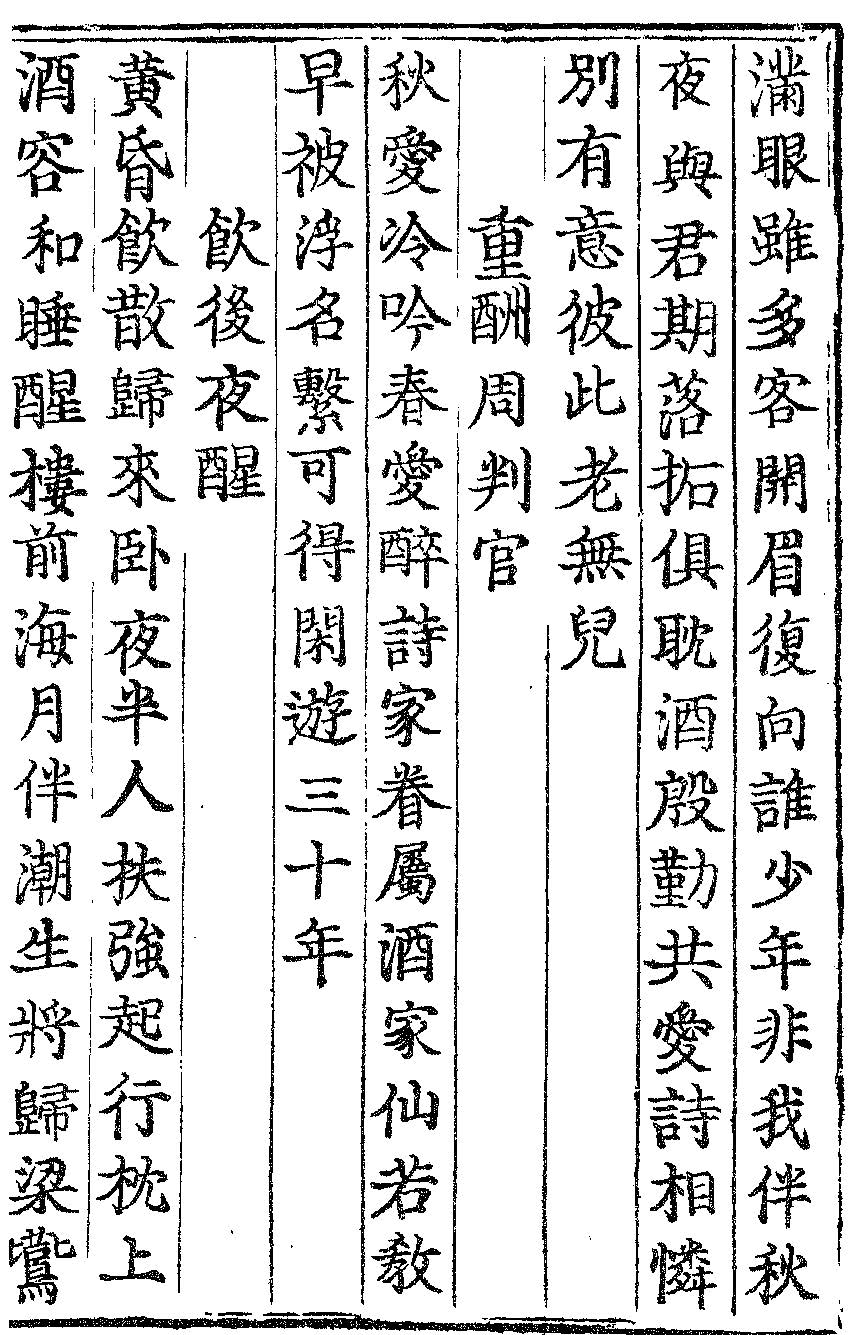 滿眼雖多客開眉復向誰少年非我伴秋
夜與君期落拓俱耽酒殷勤共愛詩相憐
別有意彼此老無兒
重酬周判官
秋愛冷吟春愛醉詩家眷屬酒家仙若教
早被浮名繫可得閑遊三十年
飲後夜醒
黃昏飲散歸來卧夜半人扶強起行枕上
酒容和睡醒樓前海月伴潮生將歸梁鷰